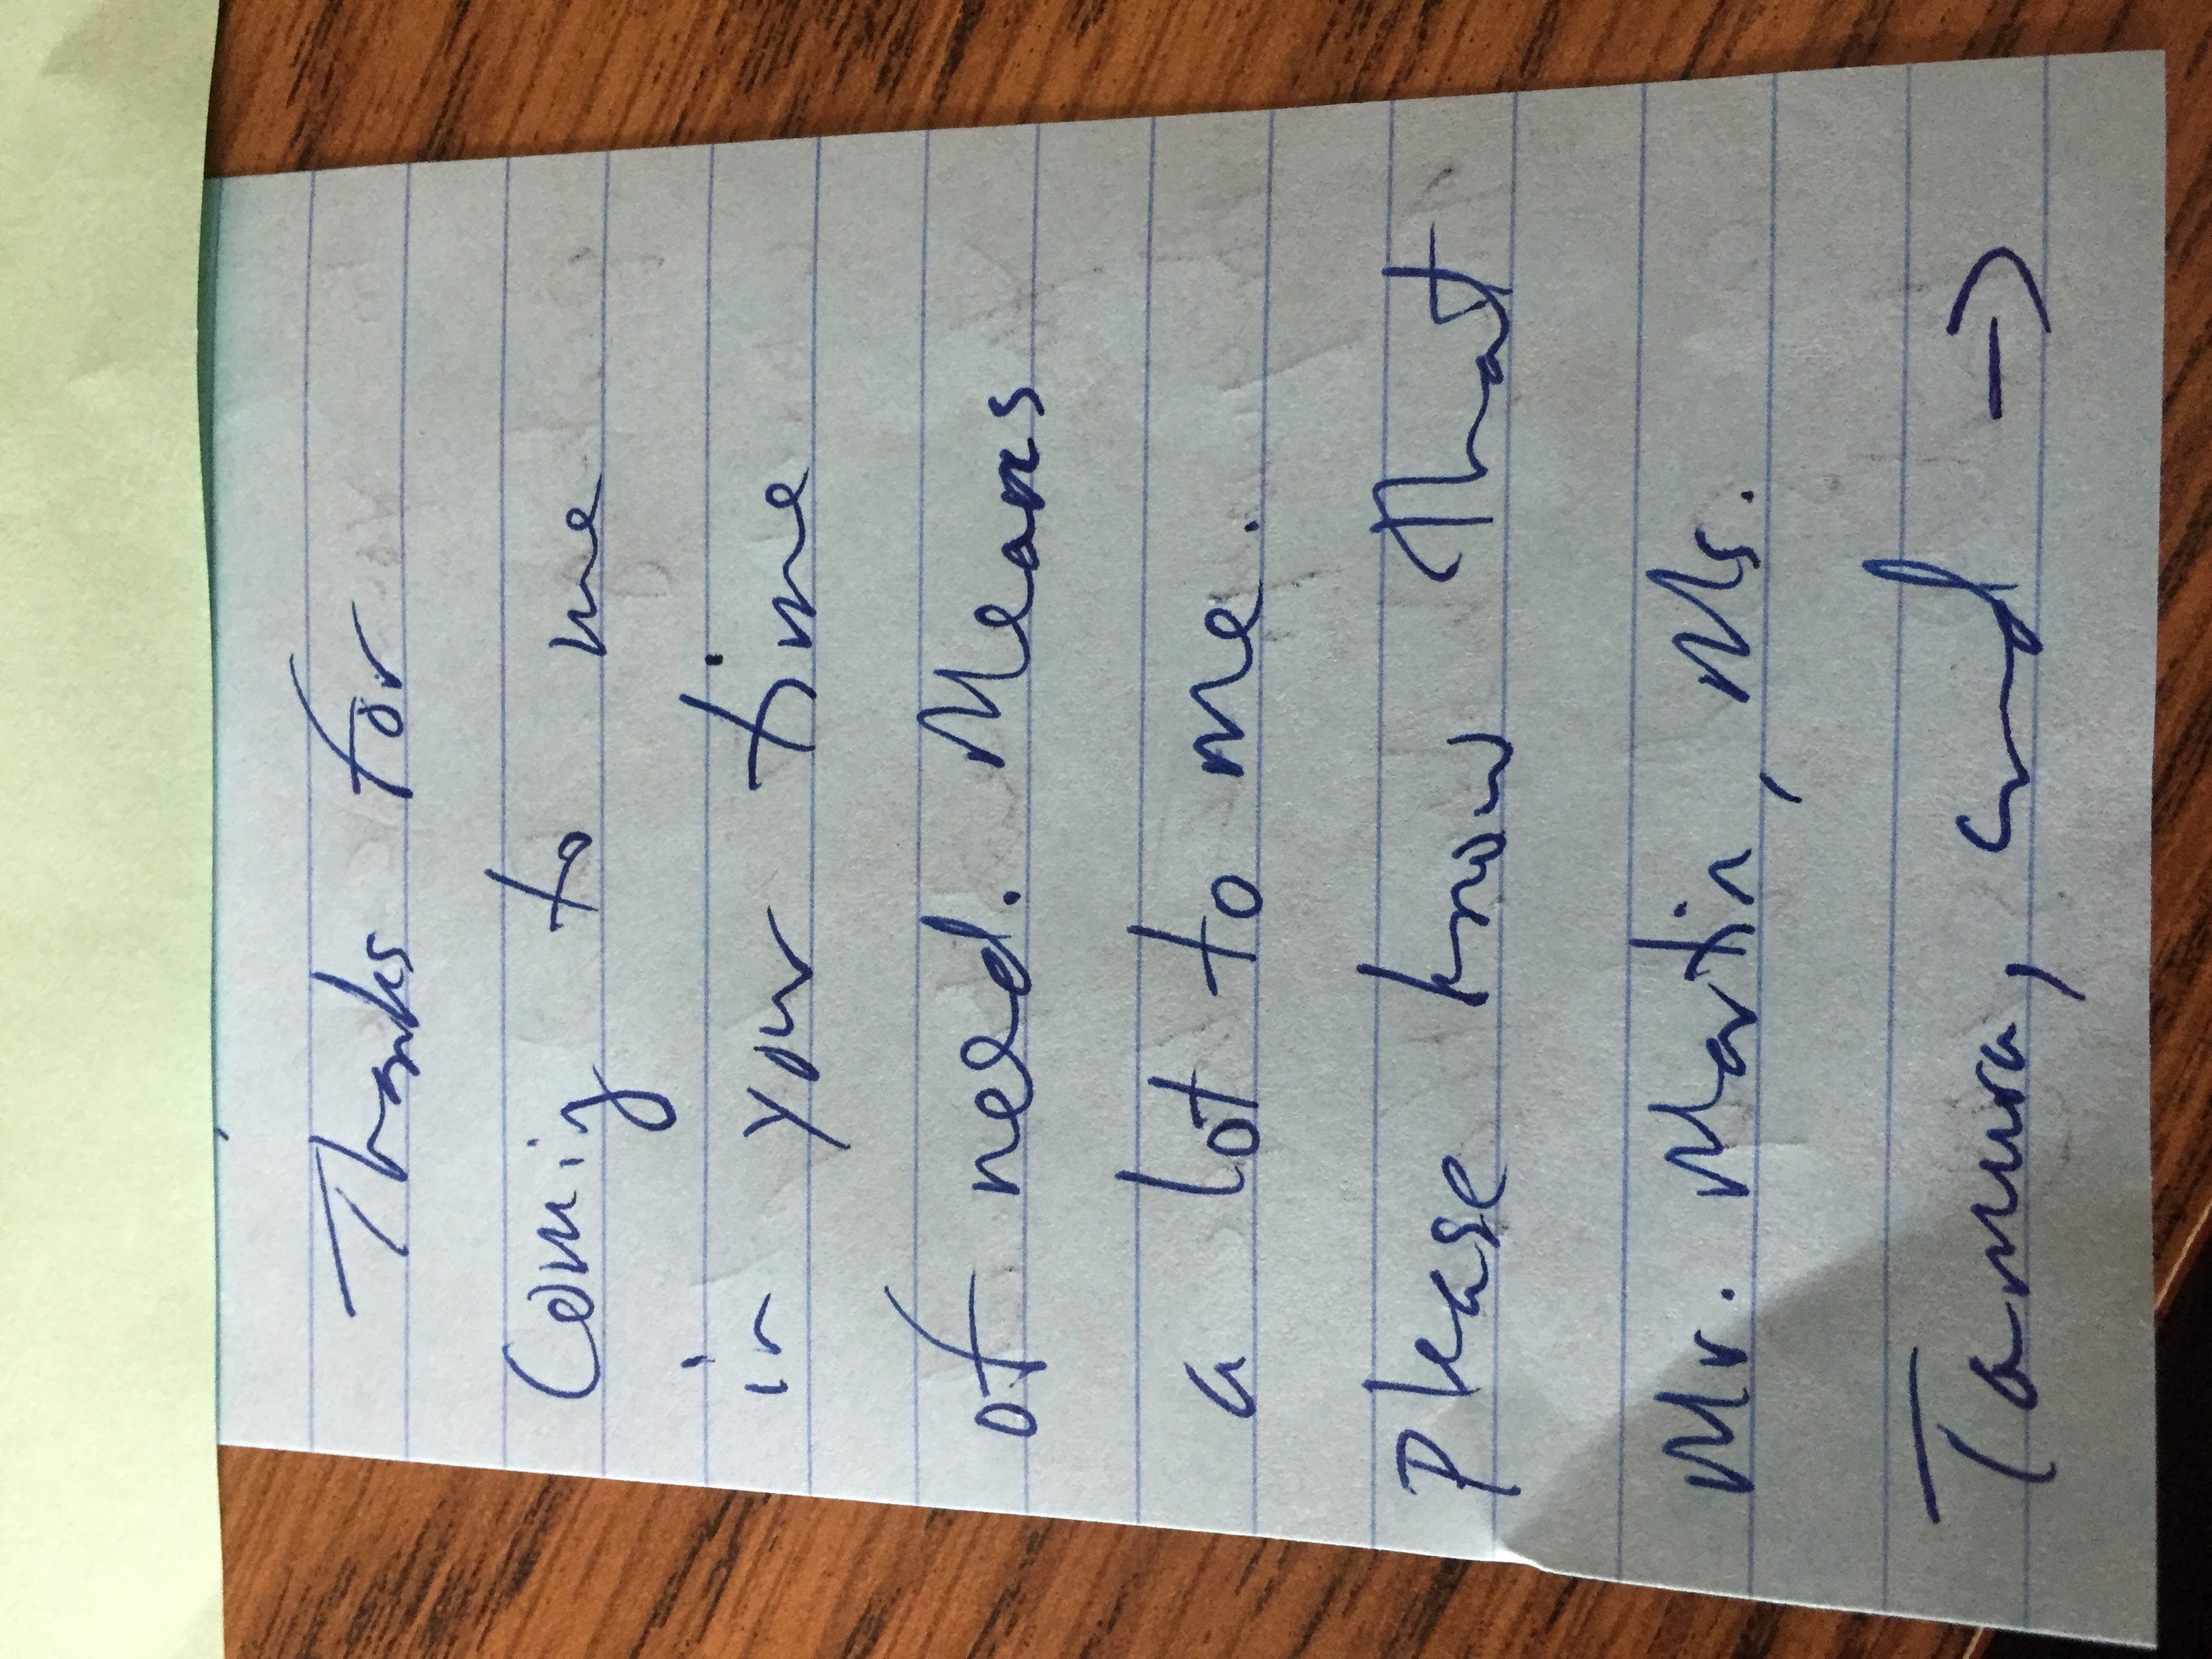 Thanks for
Coming to me
in your time
of need. Means
a lot to me.
Please know that
Mr. Martin, Ms.
Tamura, and →